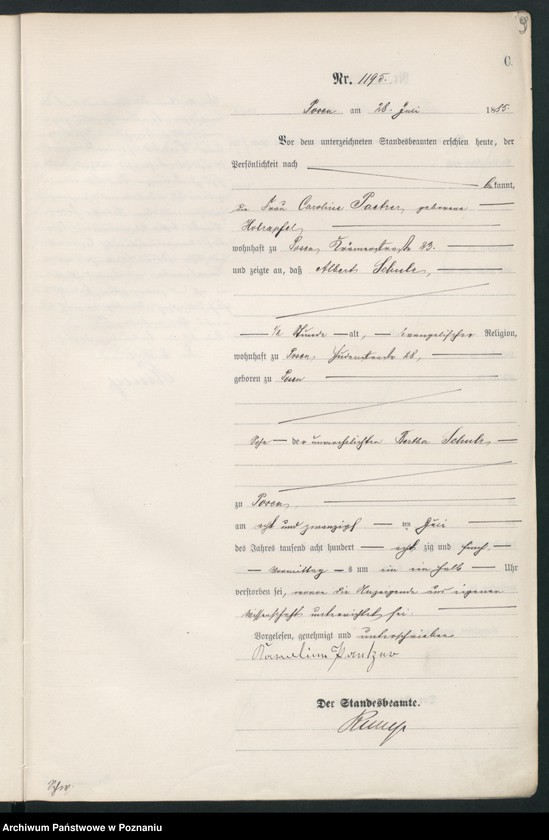 C.
Nr. 1195.
Posen am 28. Juli 1885.
Vor dem unterzeichneten Standesbeamten erschien heute, der
Persönlichkeit nach
bekannt,
die Frau Caroline geborene
Holzapfel,
wohnhaft zu Posen, Krämerstraße 23.
und zeigte an, daß Albert Schulz,
1/2 Stunde alt, evangelischer Religion,
wohnhaft zu Posen, 28,
geboren zu Posen
Sohn der unverehelichten Bertha Schulz,
zu Posen,
am acht und zwanzigsten Juli
des Jahres tausend acht hundert achtzig und fünf
Vormittags um ein einhalb Uhr
verstorben sei, wovon die Anzeigende aus eigener
Wissenschaft unterrichtet sei.
Vorgelesen, genehmigt und unterschrieben
Karoline Pantzer
Der Standesbeamte.
Archiwum Państwowe w Poznaniu